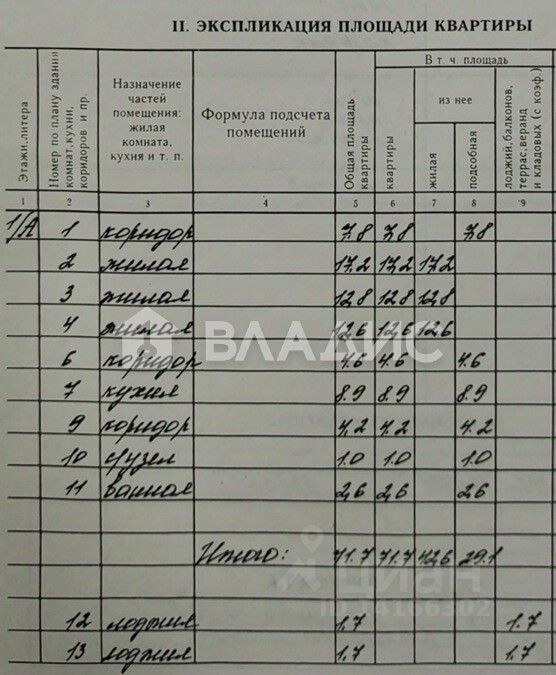 II. ЭКСПЛИКАЦИЯ ПЛОЩАДИ КВАРТИРЫ
Этажи, литера
Номер по плану здания комнат, кухни, коридоров и пр.
Назначение
частей
помещения:
жилая
комната,
кухня и т. п.
Формула подсчета
помещений
Общая площадь квартиры
В т. ч. площадь
квартиры
из нее
жилая
подсобная
лоджий, балконов, террас, веранд и кладовых (с коэф.)
1 2 3 4 5 6 7 8 9
1/А 1 коридор 7.8 7.8 7.8
2 жилая 17.2 17.2 17.2
3 жилая 12.8 12.8 12.8
4 жилая 12.6 12.6 12.6
6 коридор 4.6 4.6 4.6
7 кухня 8.9 8.9 8.9
9 коридор 4.2 4.2 4.2
10 с/узел 1.0 1.0 1.0
11 ванная 2,6 2,6 2,6
Итого: 71.7 71.7 42,6 29.1
12 лоджия 1.7 1.7
13 лоджия 1.7 1.7
ВЛАДИС
циан